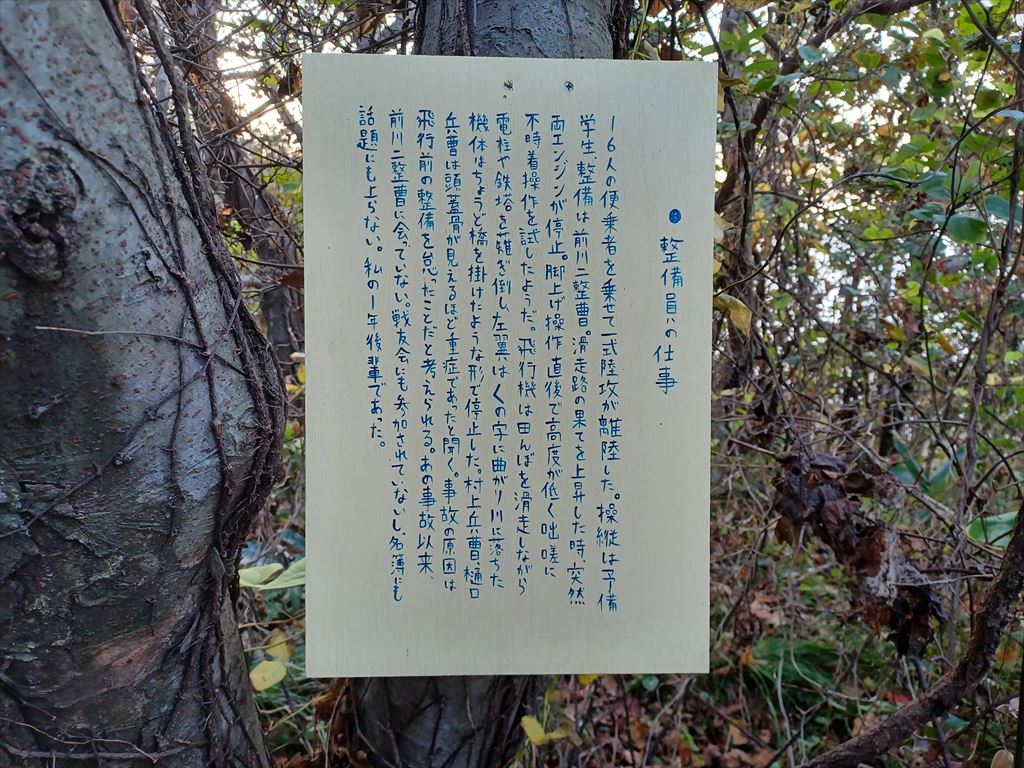 ●整備員の仕事
16人の便乗者を乗せて一式陸攻が離陸した。操縦は予備
学生、整備は前川二整曹。滑走路の果てを上昇した時、突然
両エンジンが停止。脚上げ操作直後で高度が低く咄嗟に
不時着操作を試したようだ。飛行機は田んぼを滑走しながら
電柱や鉄塔を薙ぎ倒し、左翼はくの字に曲がり川に落ちた
機体はちょうど橋を掛けたような形で停止した。村上兵曹、樋口
兵曹は頭蓋骨が見えるほど重症であったと聞く。事故の原因は
飛行前の整備を怠ったことだと考えられる。あの事故以来、
前川二整曹に会っていない。戦友会にも参加されていないし、名簿にも
話題にも上らない。私の1年後輩であった。